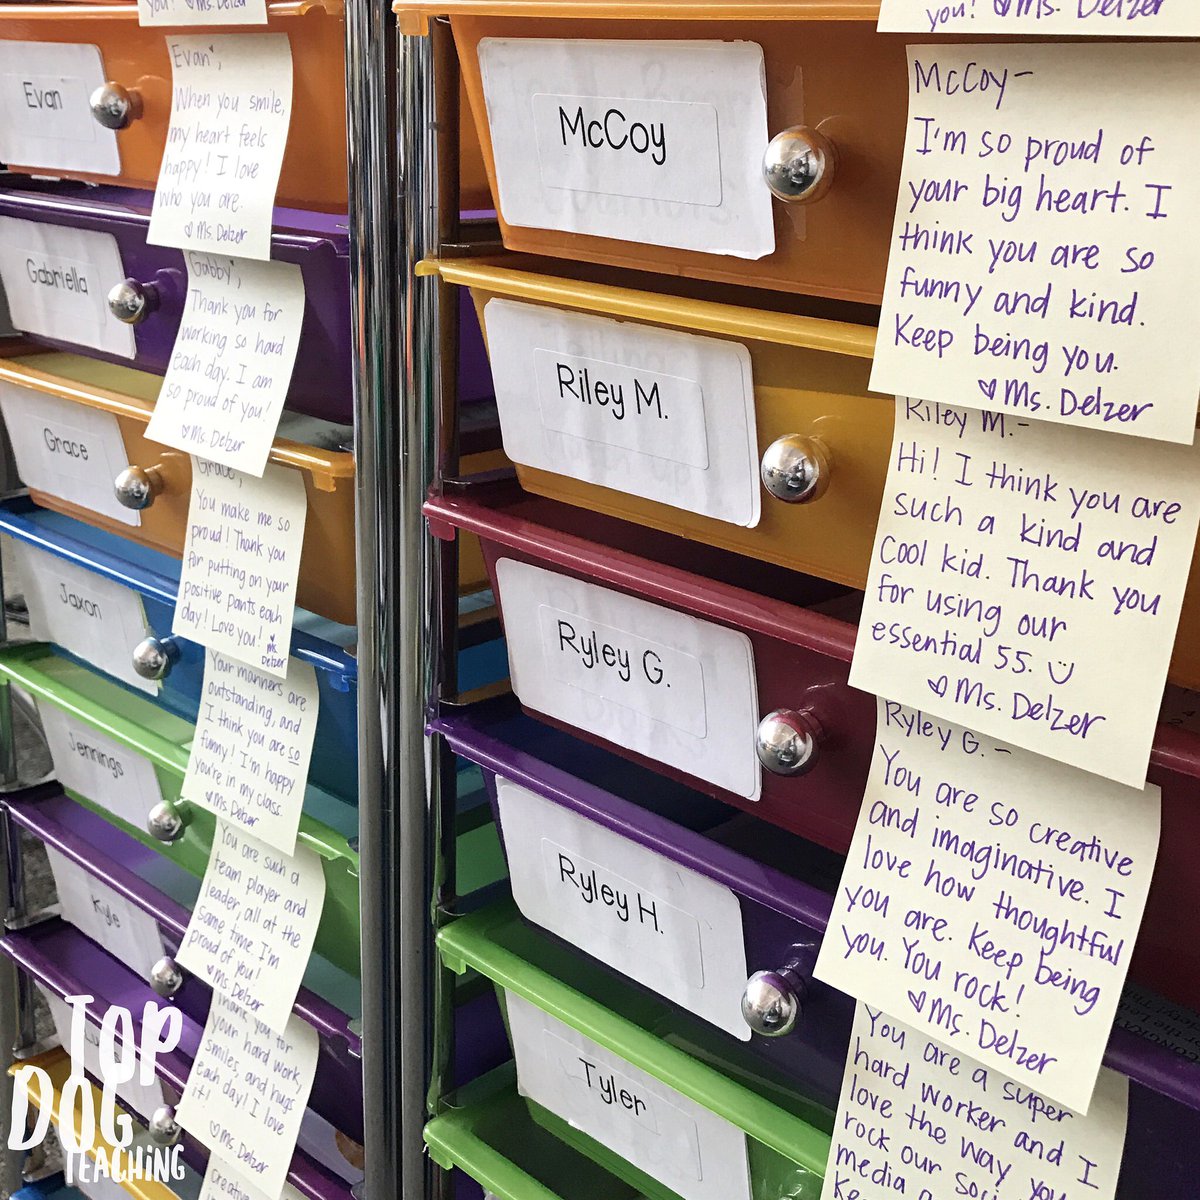 you! ♡Ms. Delzer
Evan
Evan,
When you smile,
my heart feels
happy! I love
who you are.
♡ Ms. Delzer
Gabriella
Gabby,
Thank you for
working so hard
each day. I am
so proud of you!
♡Ms. Delzer
Grace
Grace,
You make me so
proud! Thank you
for putting on your
positive pants each
day! Love you! Ms.
Delzer
Jaxon
Your manners are
outstanding, and
I think you are so
funny! I'm happy
you're in my class.
♡Ms. Delzer
Jennings
You are such a
team player and
leader, all at the
same time. I'm
proud of you!
♡Ms. Delzer
Kyle
Thank you for
your hard work,
smiles, and hugs
each day! I love
it!
♡Ms. Delzer
you! ♡Ms. Delzer
McCoy
McCoy-
I'm so proud of
your big heart. I
think you are so
funny and kind.
Keep being you.
♡Ms. Delzer
Riley M.
Riley M.-
Hi! I think you are
such a kind and
cool kid. Thank you
for using our
essential 55. ☺
♡Ms. Delzer
Ryley G.
Ryley G. -
You are so creative
and imaginative. I
love how thoughtful
you are. Keep being
you. You rock!
♡Ms. Delzer
Ryley H.
You are a super
hard worker and I
love the way you
rock our
media
Tyler
TOP
DOG
TEACHiNG